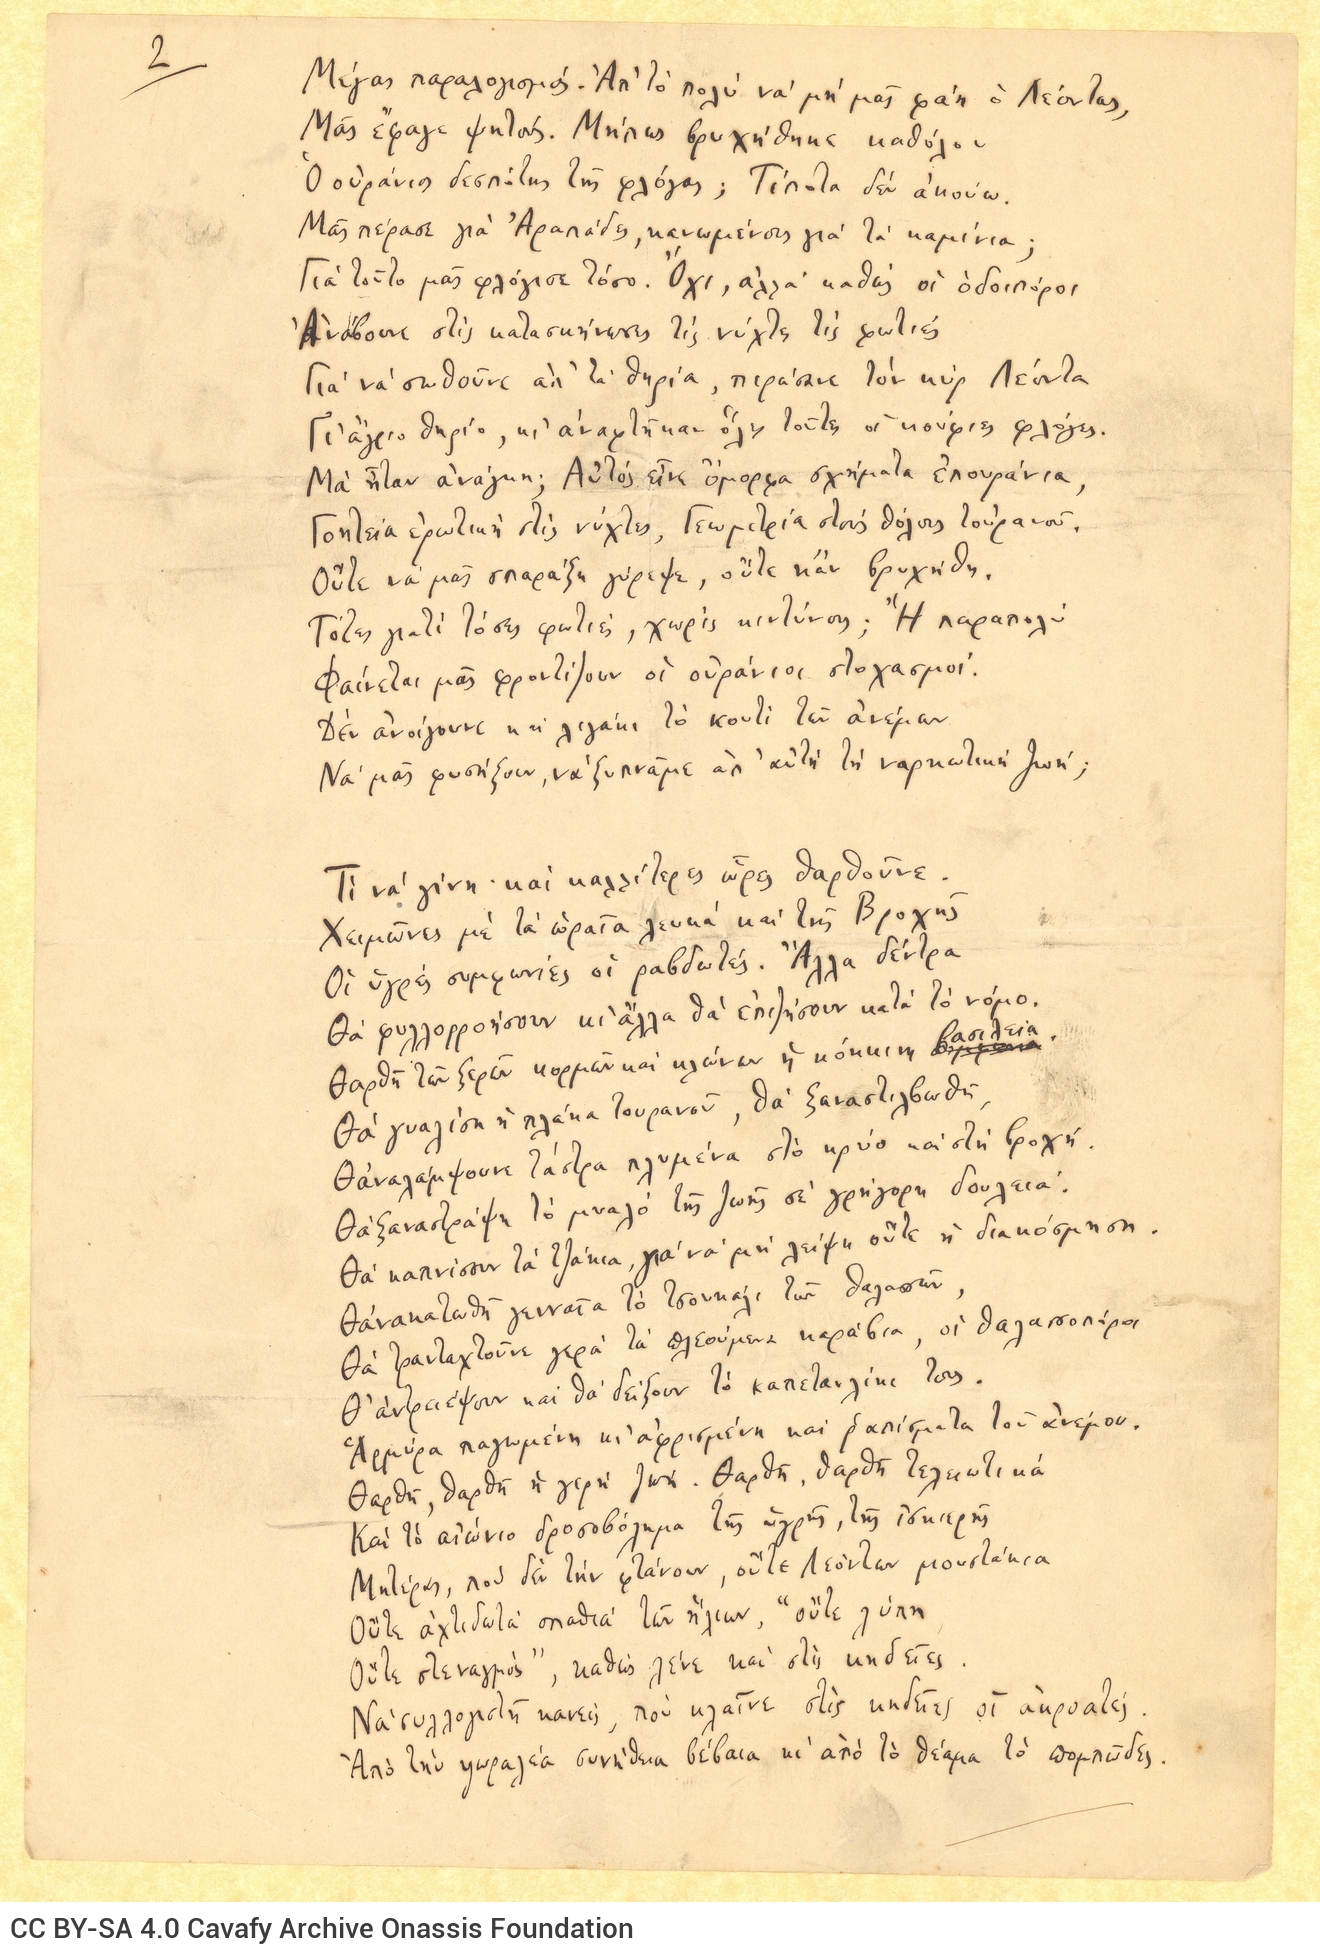 2
Μέγας παραλογισμός. Ἀπ' τὸ πολὺ νὰ μὴ μᾶς φάῃ ὁ Λέοντας,
Μᾶς ἔφαγε ψητούς. Μήπως βρυχήθηκε καθόλου
Ὁ οὐράνιος δεσπότης τῆς φλόγας; Τίποτα δὲν ἀκούω.
Μᾶς πέρασε γιὰ Ἀραπάδες, κανωμένους γιὰ τὰ καμίνια;
Γιὰ τοῦτο μᾶς φλόγισε τόσο. Ὄχι, ἀλλὰ καθὼς οἱ ὁδοιπόροι
Ἀνάβουνε στὶς κατασκήνωσες τὶς νύχτες τὶς φωτιὲς
Γιὰ νὰ σωθοῦνε ἀπ' τὰ θηρία, περάσανε τὸν κὺρ Λέοντα
Γι' ἄγριο θηρίο, κι' ἀναφτῆκαν ὅλες τοῦτες οἱ κούφιες φλόγες.
Μὰ ἦταν ἀνάγκη; Αὐτὸς εἶνε ὄμορφα σχήματα ἐπουράνια,
Γοητεία ἐρωτικὴ στὶς νύχτες, Γεωμετρία στοὺς θόλους τοὐρανοῦ.
Οὔτε νὰ μᾶς σπαράξῃ γύρεψε, οὔτε κἂν βρυχήθη.
Τότες γιατὶ τόσες φωτιές, χωρὶς κιντύνους; Ἢ παραπολὺ
Φαίνεται μᾶς φροντίζουν οἱ οὐράνιοι στοχασμοί.
Δὲν ἀνοίγουνε καὶ λιγάκι τὸ κουτὶ τῶν ἀνέμων
Νὰ μᾶς φυσήξουν, νὰ ξυπνᾶμε ἀπ' αὐτὴ τὴ ναρκωτικὴ ζωή;
Τί νὰ γίνῃ· καὶ καλλίτερες ὧρες θαρθοῦνε.
Χειμῶνες μὲ τὰ ὡραῖα λευκὰ καὶ τῆς Βροχῆς
Οἱ ὑγρὲς συμφωνίες οἱ ραβδωτές. Ἄλλα δέντρα
Θὰ φυλλορροήσουν κι' ἄλλα θὰ ἐπιζήσουν κατὰ τὸ νόμο.
Θαρθῆ τῶν ξερῶν κορμῶν καὶ κλώνων ἡ κόκκινη βασιλεία.
Θὰ γυαλίσῃ ἡ πλάκα τοὐρανοῦ, θὰ ξαναστιλβωθῆ,
Θἀναλάμψουνε τἄστρα πλυμένα στὸ κρύο καὶ στὴ βροχή.
Θὰ ξαναστράψῃ τὸ μυαλὸ τῆς ζωῆς σὲ γρήγορη δουλειά.
Θὰ καπνίσουν τὰ τζάκια, γιὰ νὰ μὴ λείψῃ οὔτε ἡ διακόσμηση.
Θἀνακατωθῆ γενναῖα τὸ τσουκάλι τῶν θαλασσῶν,
Θὰ τρανταχτοῦνε γερὰ τὰ πλεούμενα καράβια, οἱ θαλασσοπόροι
Θ' ἀντρειέψουν καὶ θὰ δείξουν τὸ καπετανλίκι τους.
Ἁρμύρα παγωμένη κι' ἀφρισμένη καὶ ραπίσματα τοῦ ἀνέμου.
Θαρθῆ, θαρθῆ ἡ γερὴ ζωή. Θαρθῆ, θαρθῆ τελειωτικὰ
Καὶ τὸ αἰώνιο δροσοβόλημα τῆς ὑγρῆς, τῆς ἰσκιερῆς
Μητέρας, ποὺ δὲν τὴν φτάνουν, οὔτε Λεόντων μουστάκια
Οὔτε ἀχτιδωτὰ σπαθιὰ τῶν ἥλιων, "οὔτε λύπη
Οὔτε στεναγμός", καθὼς λένε καὶ στὶς κηδεῖες.
Νὰ συλλογιστῆ κανεὶς, ποὺ κλαῖνε στὶς κηδεῖες οἱ ἀκροατές.
Ἀπὸ τὴν ψωραλέα συνήθεια βέβαια κι' ἀπὸ τὸ θέαμα τὸ πομπῶδες.
CC BY-SA 4.0 Cavafy Archive Onassis Foundation